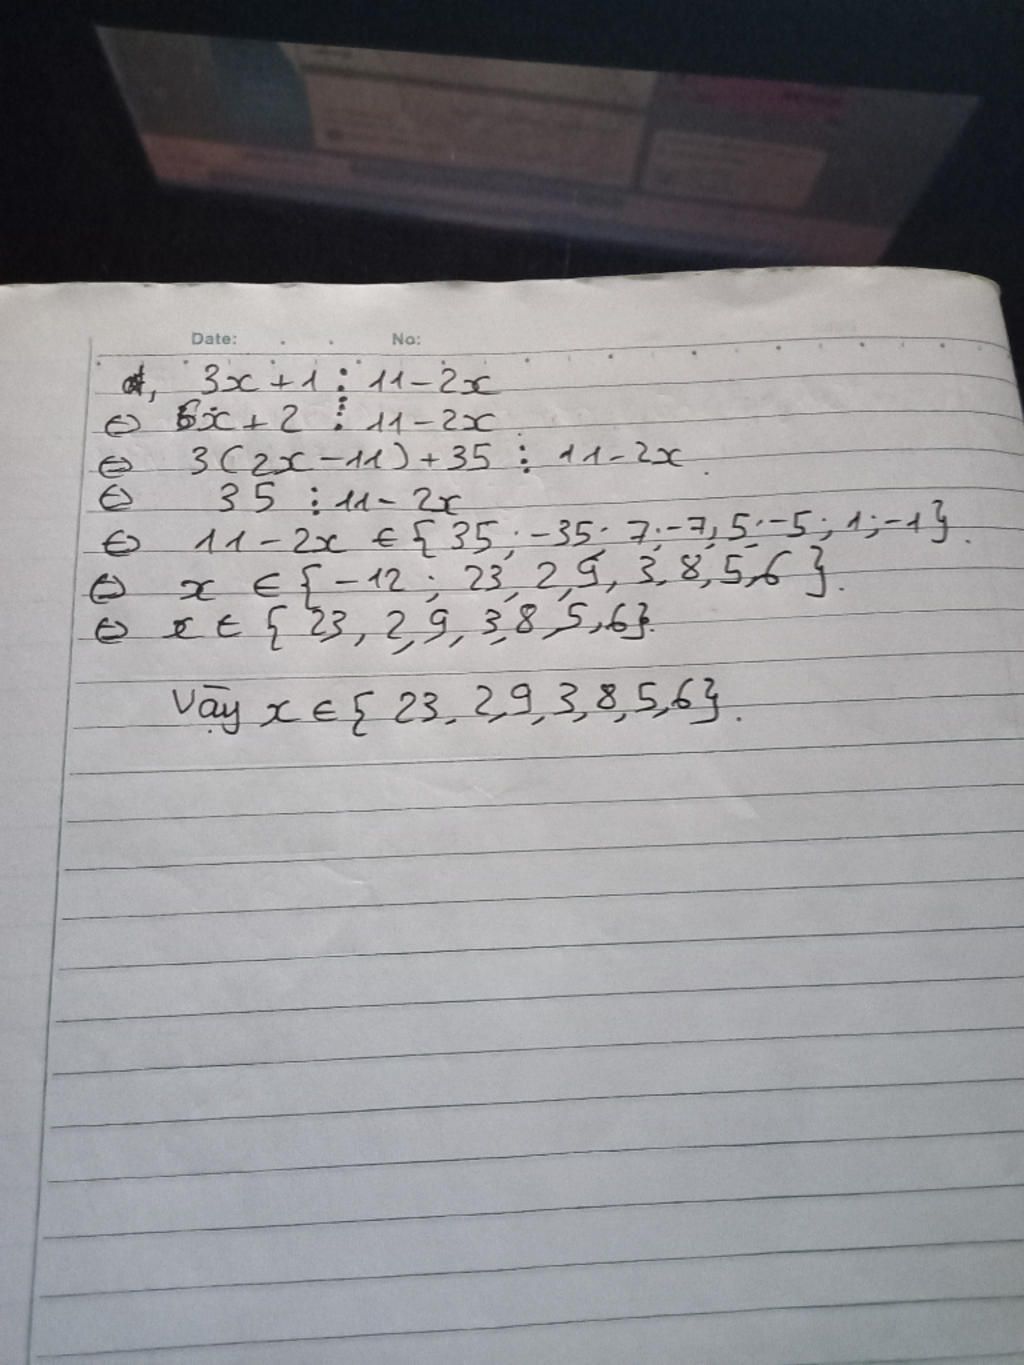 Date: No:
d, 3x + 1 ⋮ 11 - 2x
⇔ 6x + 2 ⋮ 11 - 2x
⇔ 3(2x - 11) + 35 ⋮ 11 - 2x.
⇔ 35 ⋮ 11 - 2x
⇔ 11 - 2x ∈ {35; -35; 7; -7; 5; -5; 1; -1}.
⇔ x ∈ {-12; 23, 2, 9, 3, 8, 5, 6}.
⇔ x ∈ {23, 2, 9, 3, 8, 5, 6}.
Vậy x ∈ {23, 2, 9, 3, 8, 5, 6}.